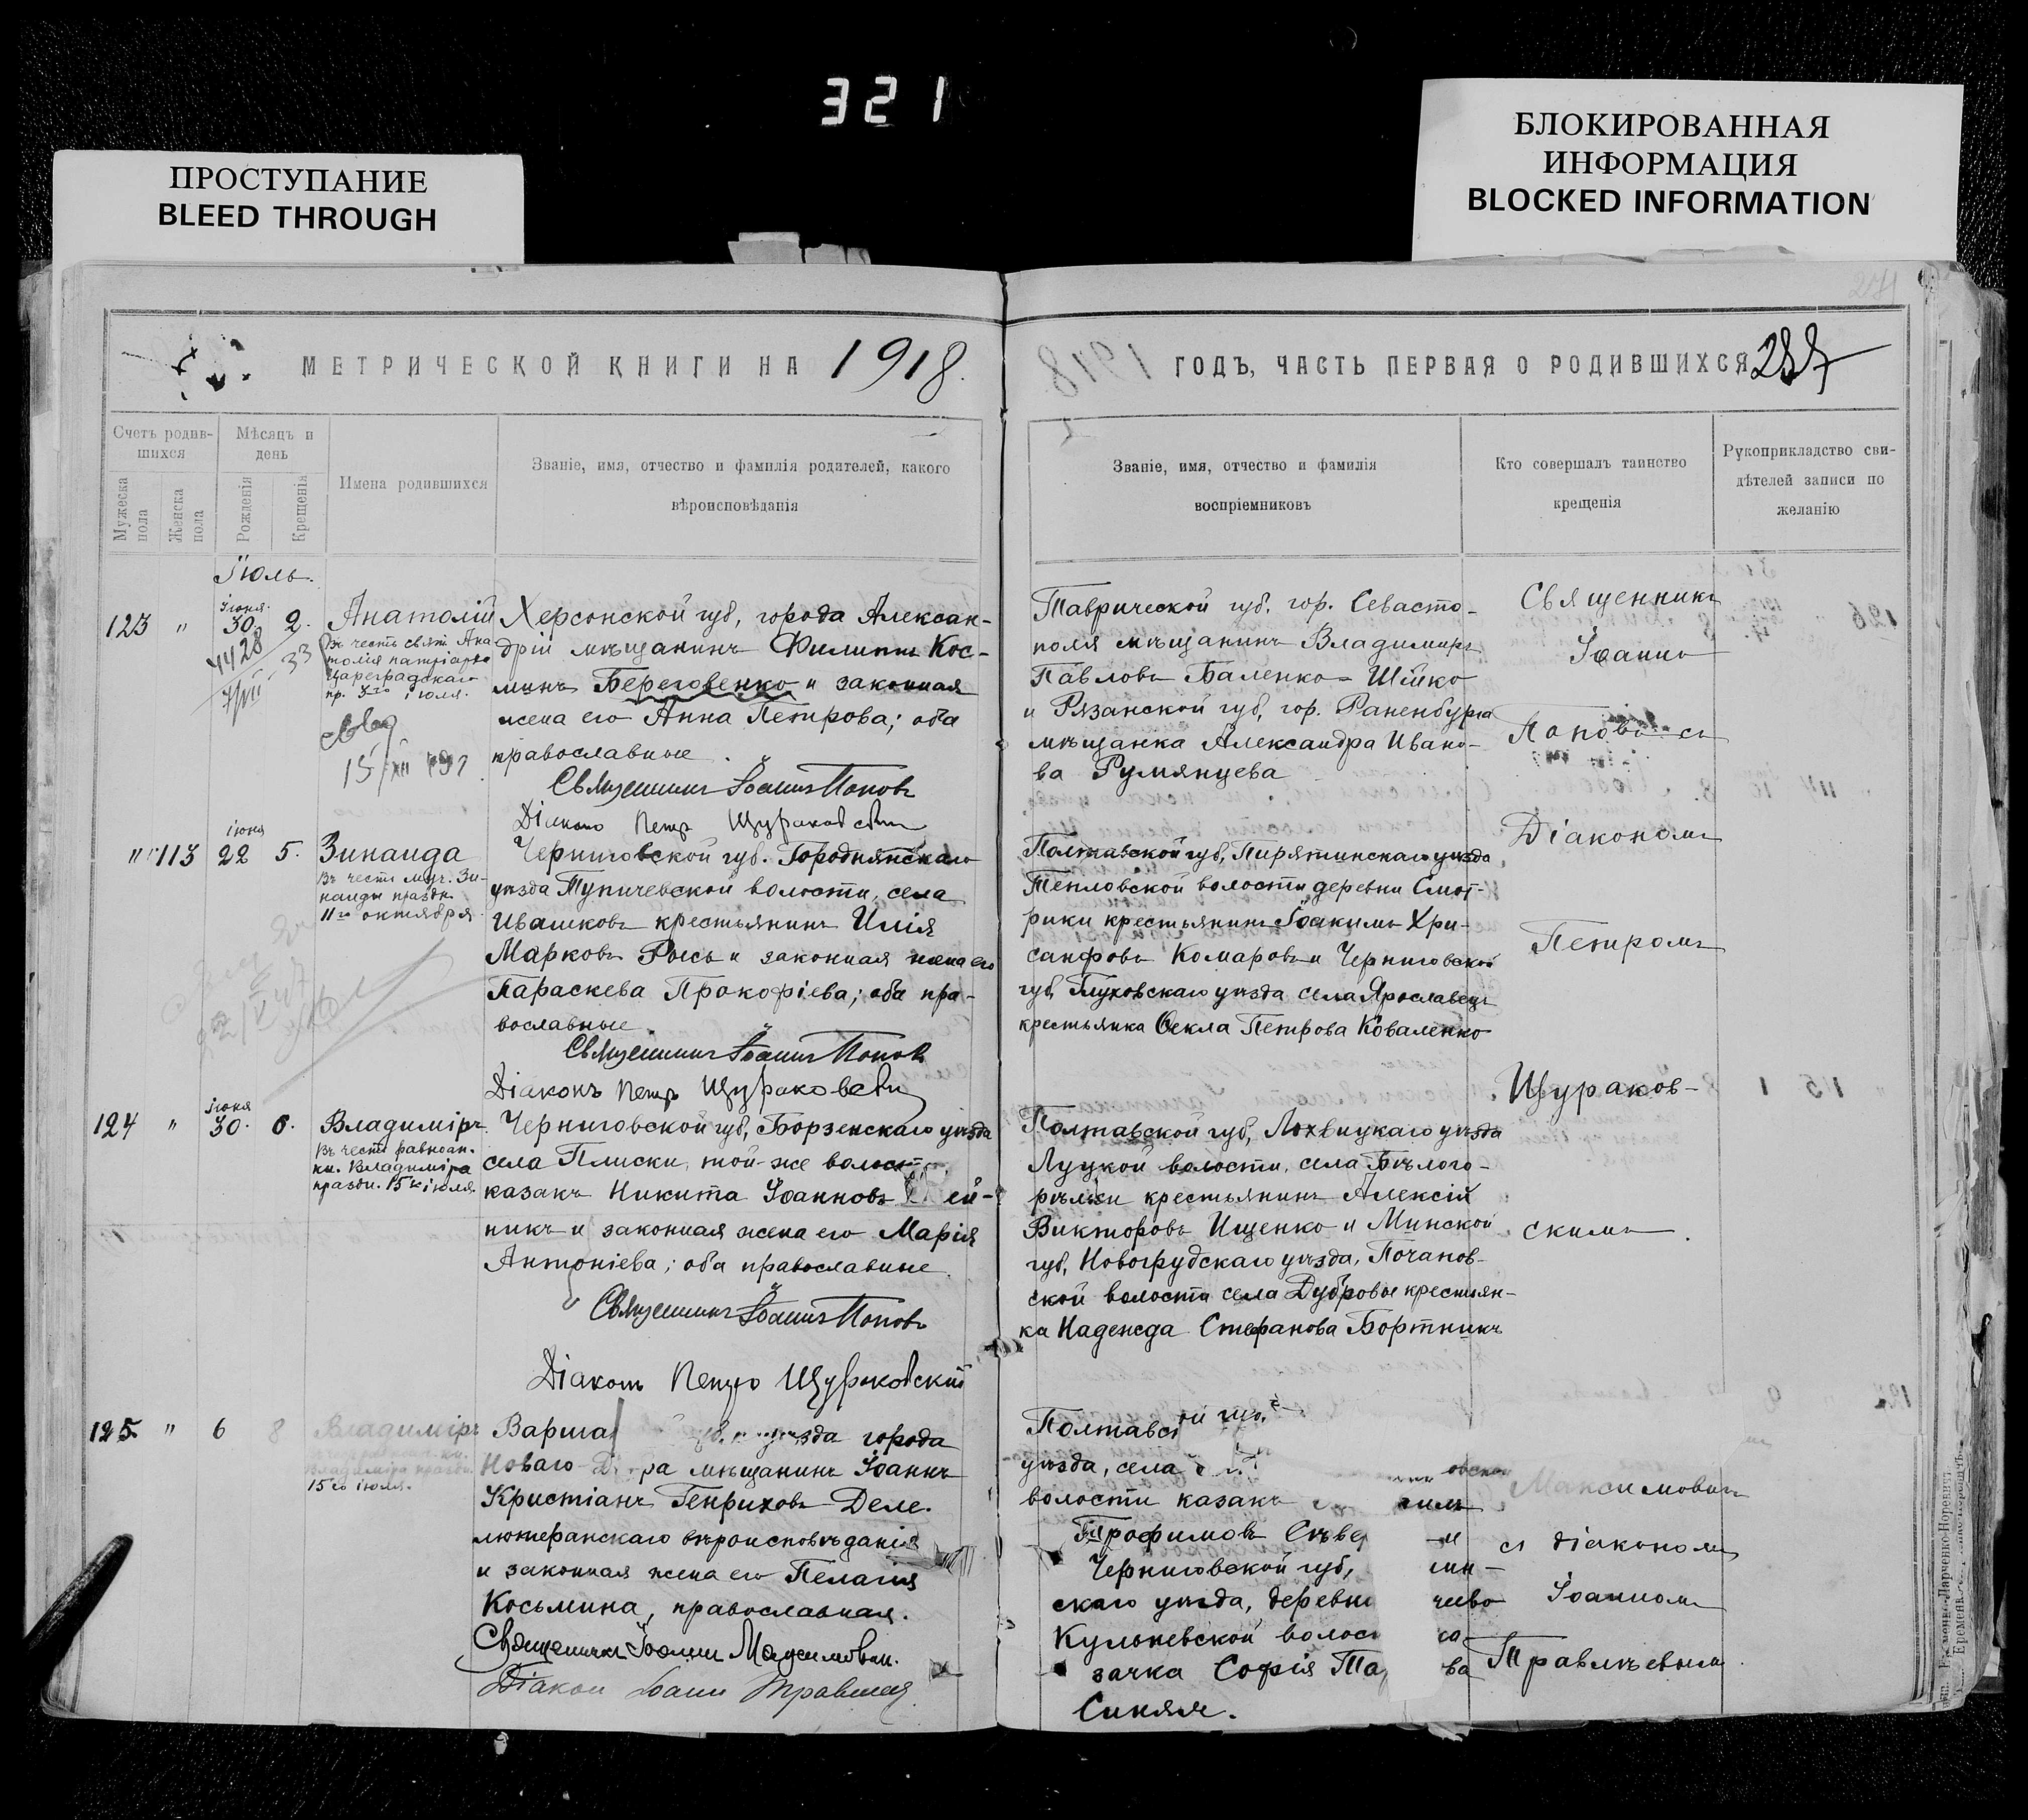 321
ПРОСТУПАНИЕ
BLEED THROUGH
БЛОКИРОВАННАЯ
ИНФОРМАЦИЯ
BLOCKED INFORMATION
МЕТРИЧЕСКОЙ КНИГИ НА 1918
Счетъ родив-
шихся
Мужеска
пола
Женска
пола
Мѣсяцъ и
день
Рожденія
Крещенія
Имена родившихся
Званіе, имя, отчество и фамилія родителей, какого
вѣроисповѣданія
Іюль.
123 " Іюня 30. 2.
Анатолій
Въ честь свят. Ана-
толія патріарха
Цареградскаго
пр. 3го іюля.
Херсонской губ, города Алексан-
дріи мѣщанинъ Филиппъ Кос-
минъ Береговенко и законная
жена его Анна Петрова; оба
православные.
Священникъ Іоаннъ Поповъ
Діаконъ Петр Щураковскій
" 113 іюня 22 5.
Зинаида
Въ честь муч. Зи-
наиды праздн.
11го октября
Черниговской губ. Городнянскаго
уѣзда Тупичевской волости, села
Ивашковъ крестьянинъ Илія
Марковъ Рысь и законная жена его
Параскева Прокофіева; оба пра-
вославные.
Священникъ Іоаннъ Поповъ
Діаконъ Петр Щураковскій
124 " іюня 30. 6.
Владиміръ.
Въ честь равноап.
кн. Владиміра
праздн. 15го іюля.
Черниговской губ, Борзенскаго уѣзда
села Плиски, той-же волости,
казакъ Никита Іоанновъ ей-
никъ и законная жена его Марія
Антоніева; оба православные.
Священникъ Іоаннъ Поповъ
Діаконъ Петръ Щураковский
125 " 6 8
Владиміръ
Владиміра праздн.
15го іюля.
Варша уѣзда города
Новаго ра мѣщанинъ Іоаннъ
Кристіанъ Генриховъ Деле.
лютеранскаго вѣроисповѣданія
и законная жена его Пелагія
Косьмина, православная.
Священникъ Іоаннъ Максимович.
Діакон Іоанн
ГОДЪ, ЧАСТЬ ПЕРВАЯ О РОДИВШИХСЯ
Званіе, имя, отчество и фамилія
воспріемниковъ
Кто совершалъ таинство
крещенія
Рукоприкладство сви-
дѣтелей записи по
желанію
Таврической губ. гор. Севасто-
поля мѣщанинъ Владимиръ
Павловъ Баленко-Шійко
и Рязанской губ, гор. Раненбурга
мѣщанка Александра Ивано-
ва Румянцева
Полтавской губ, Пирятинскаго уѣзда
Тепловской волости деревни Смот-
рики крестьянинъ Іоакимъ Хри-
санфовъ Комаровъ и Черниговской
губ, Глуховскаго уѣзда села Ярославецъ
крестьянка Ѳекла Петрова Коваленко
Полтавской губ, Лохвицкаго уѣзда
Луцкой волости, села Бѣлого-
рѣлки крестьянинъ Алексій
Викторовъ Ищенко и Минской
губ, Новогрудскаго уѣзда, Почапов-
ской волости села Дубровы крестьян-
ка Надежда Стефанова Бортникъ
Полтавс
уѣзда, села
волости казакъ
Трофимовъ Сѣве
Черниговской губ,
скаго уѣзда, деревни
Кульневской волос
зачка Софія Та ва
Синяя.
Священникъ
Іоаннъ
Поповъ съ
Діакономъ
Петромъ
Щураков-
скимъ.
Максимовичъ
съ діакономъ
Іоанномъ
Травлѣевымъ.